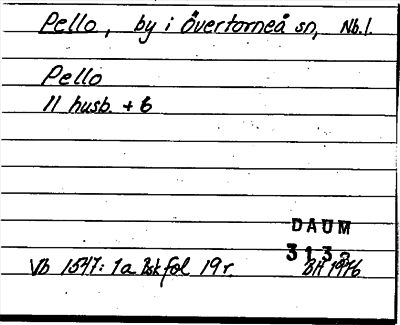 Pello, by i Övertorneå sn, Nb.l.
Pello
11 husb. + 6
DAUM
3132
Vb 1547: 1a Bsk fol 19 r. BH 1976